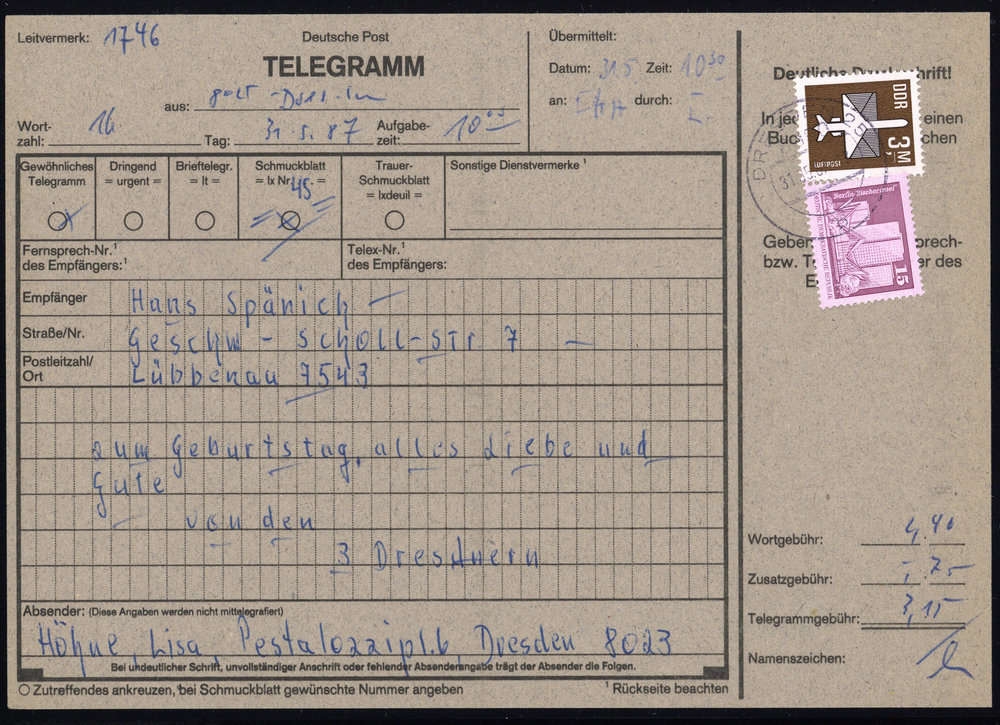 Leitvermerk: 1746
Deutsche Post
TELEGRAMM
aus:
Wort-
zahl: 16
Tag: 31.5.87
Aufgabe-
zeit: 10⁰⁵
Übermittelt:
Datum: 315 Zeit: 10³⁰
an: durch:
Gewöhnliches
Telegramm
Dringend
= urgent =
Brieftelegr.
= lt =
Schmuckblatt
= lx Nr. 45 =
Trauer-
Schmuckblatt
= lxdeuil =
Sonstige Dienstvermerke ¹
Fernsprech-Nr.¹
des Empfängers:¹
Telex-Nr.¹
des Empfängers:
Empfänger Hans Spänich –
Straße/Nr. Geschw - Scholl-Str. 7 –
Postleitzahl/
Ort Lübbenau 7543
zum Geburtstag, alles Liebe und
Gute
von den
3 Dresdnern
Absender: (Diese Angaben werden nicht mittelegrafiert)
Höhne, Lisa, Pestalozzipl. 6, Dresden 8023
Bei undeutlicher Schrift, unvollständiger Anschrift oder fehlender Absenderangabe trägt der Absender die Folgen.
Zutreffendes ankreuzen, bei Schmuckblatt gewünschte Nummer angeben
¹ Rückseite beachten
DDR
3 M
LUFTPOST
Berlin, Fischerinsel
15
In einen
Wortgebühr:
Zusatzgebühr: -,75
Telegrammgebühr: 3,15
Namenszeichen: